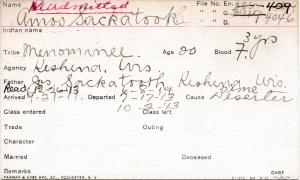 Name Readmitted File No. En. 409
Amos Sackatook 4046
Indian name 3 yrs
Tribe Menominee Age 20 Blood F.
Agency Keshena, Wis
Father Jos. Sackatook, Keshena Wis.
Read. 12-26-13
Arrived 9-27-11. Departed 9-17-13 Cause Deserter
10-2-13
Class entered Class left
Trade Outing
Character
Married Deceased
Remarks